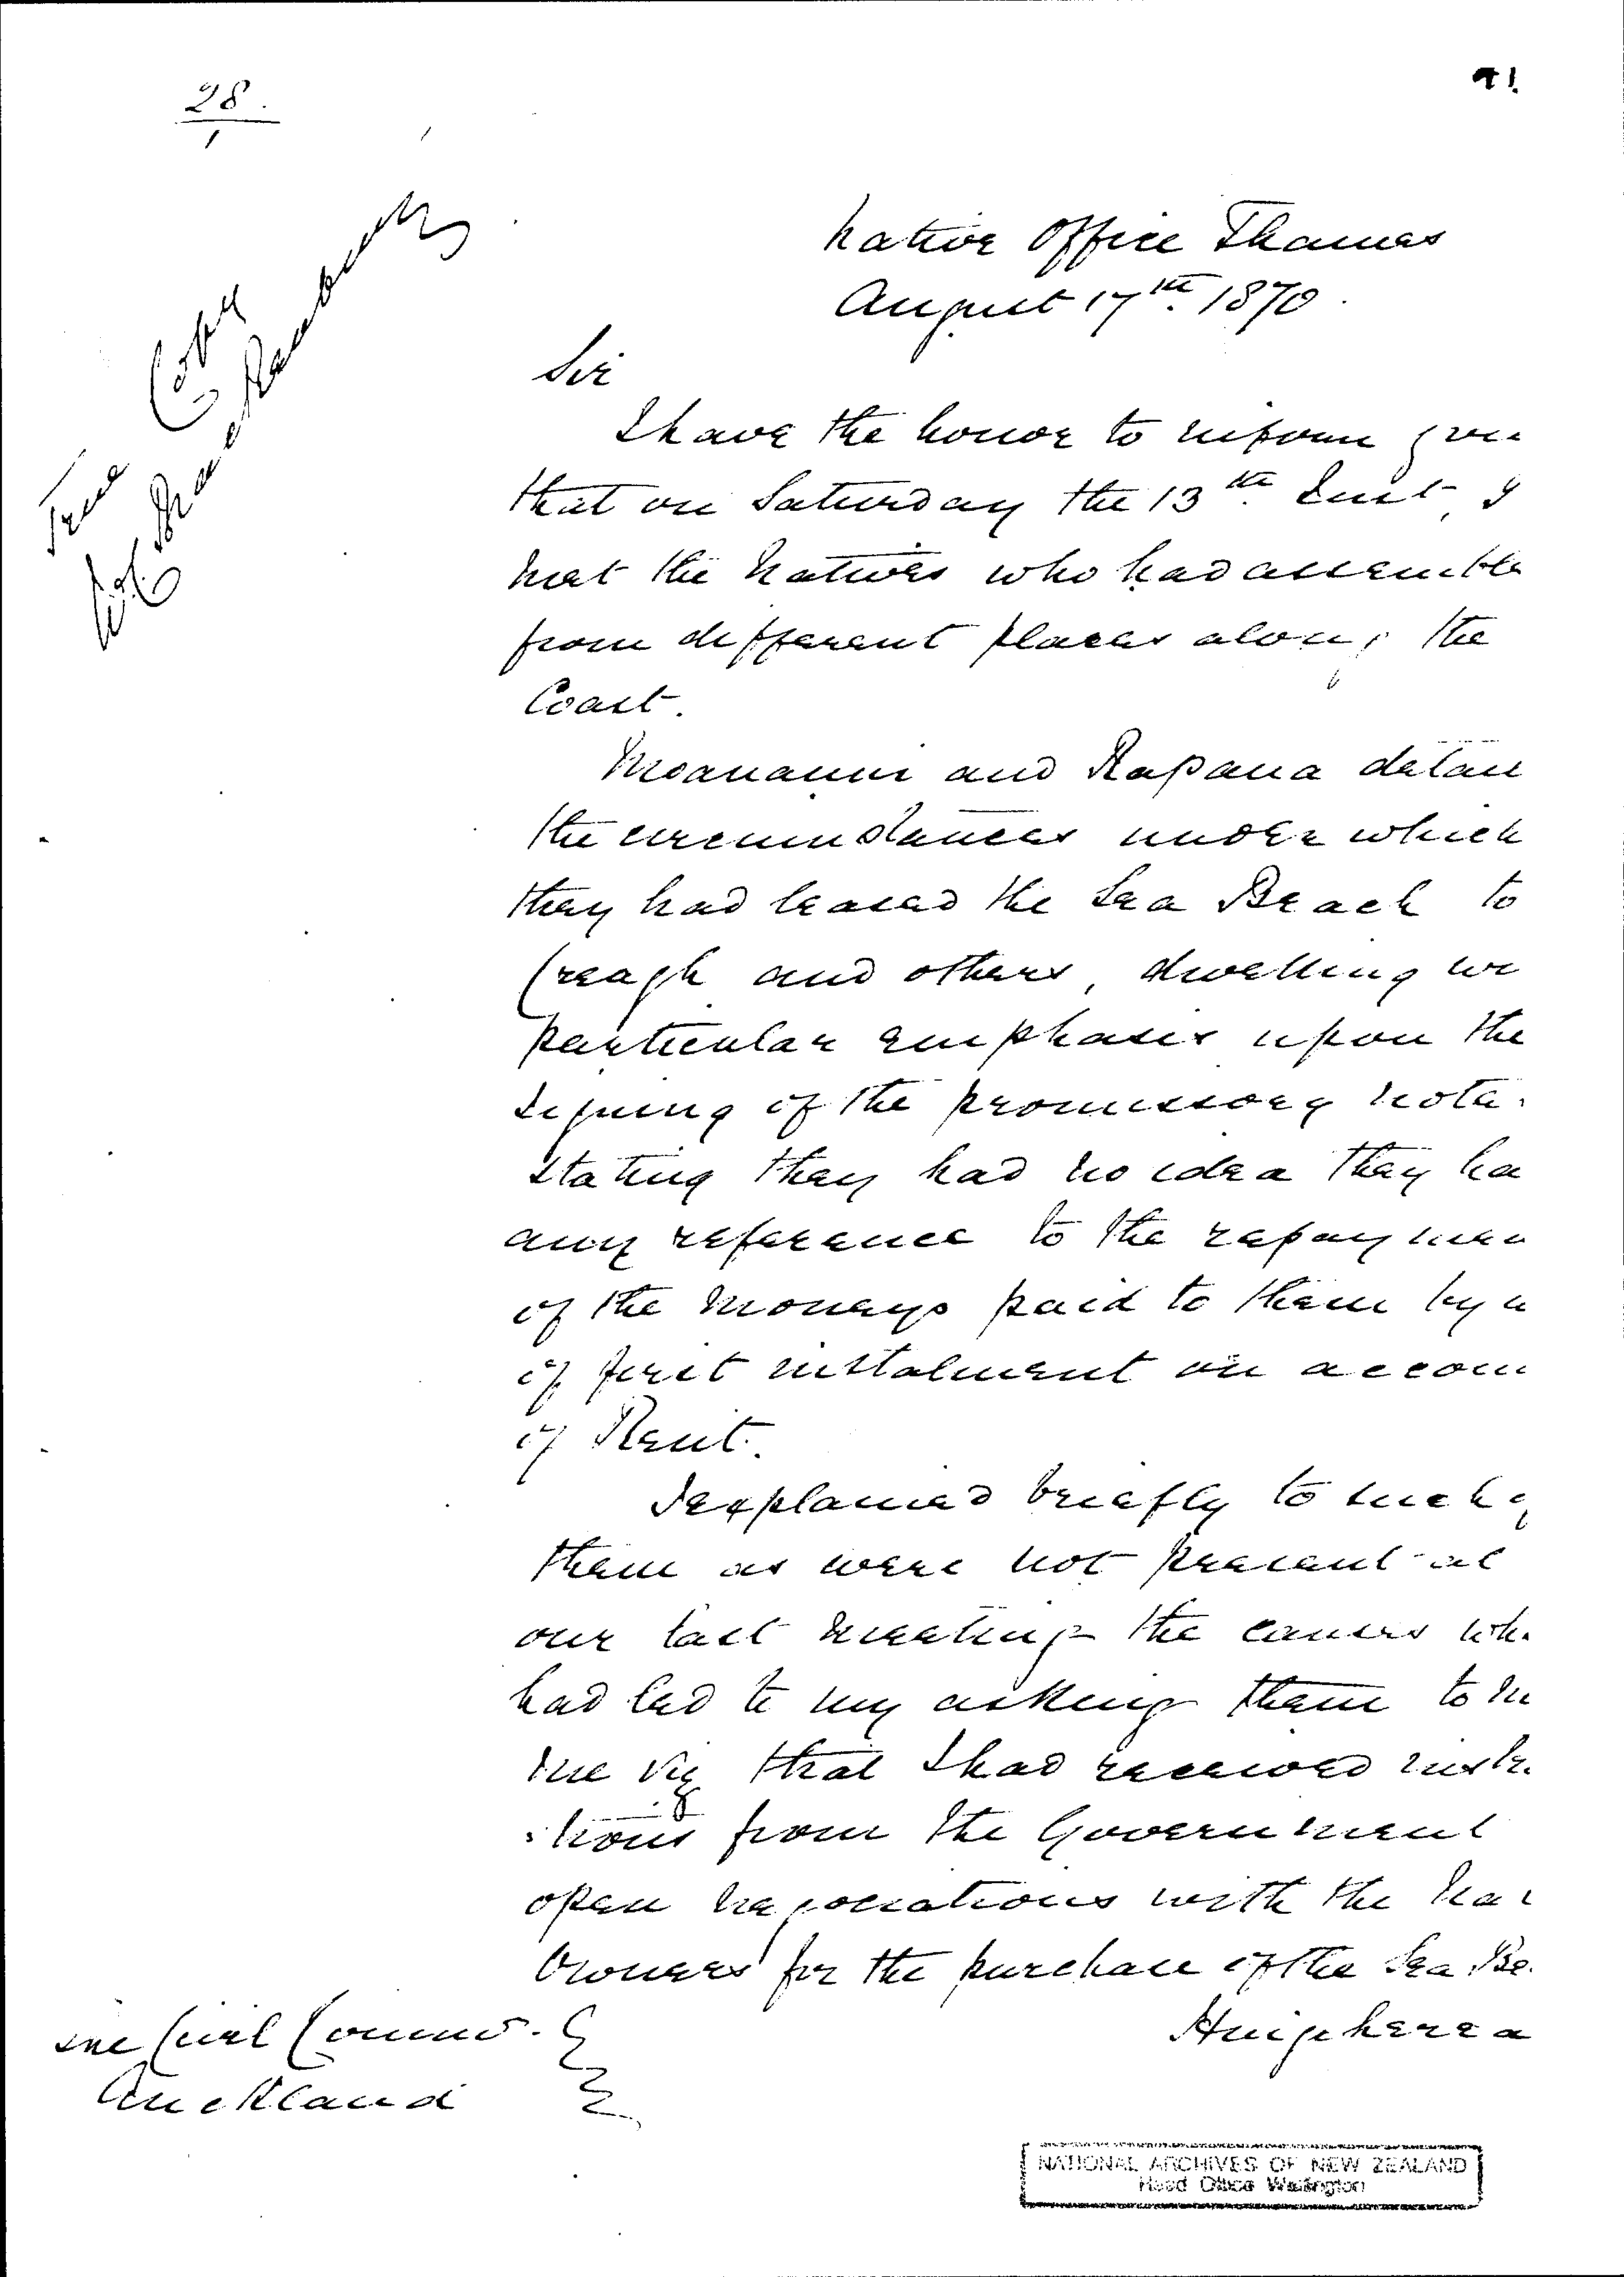 28.
1
91.
Copy
Native Office Thames
August 17th 1870.
Sir
I have the honor to inform you
that on Saturday the 13th Inst, I
met the Natives who had assemble
from different places along the
Coast.
and Rapana detail
the circumstances under which
they had leased the Sea Beach to
Creagh and others, dwelling wi
particular emphasis upon the
signing of the promissory note.
stating they had no idea they ha
any reference to the repaymen
of the Moneys paid to them by w
of first instalment on accoun
of Rent.
I explained briefly to such of
them as were not present at
our last meeting the causes wh.
had led to my asking them to m
me viz that I had received instr.
:tions from the Government
open negociations with the Na
Owners for the purchase of the Sea Be.
The Civil Commr.
Auckland
NATIONAL ARCHIVES OF NEW ZEALAND
Head Office Wellington